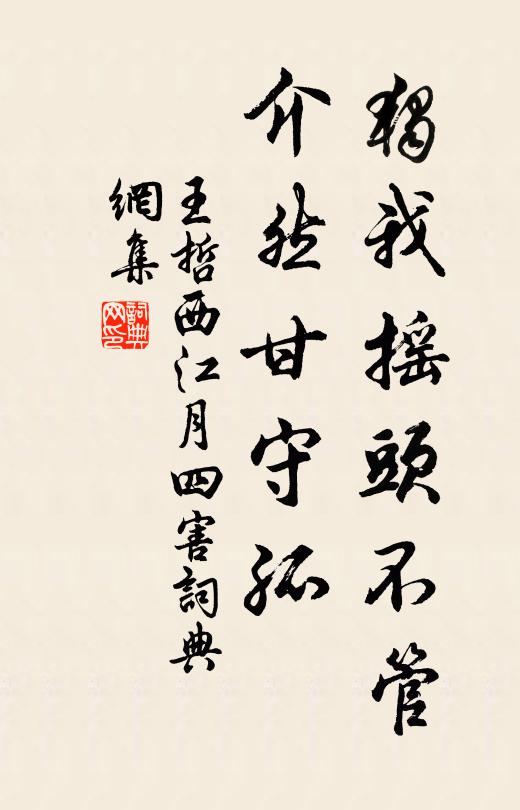 獨我摇頭不管
介然甘守孤
王哲西江月四害詞典
網集
詞典网印